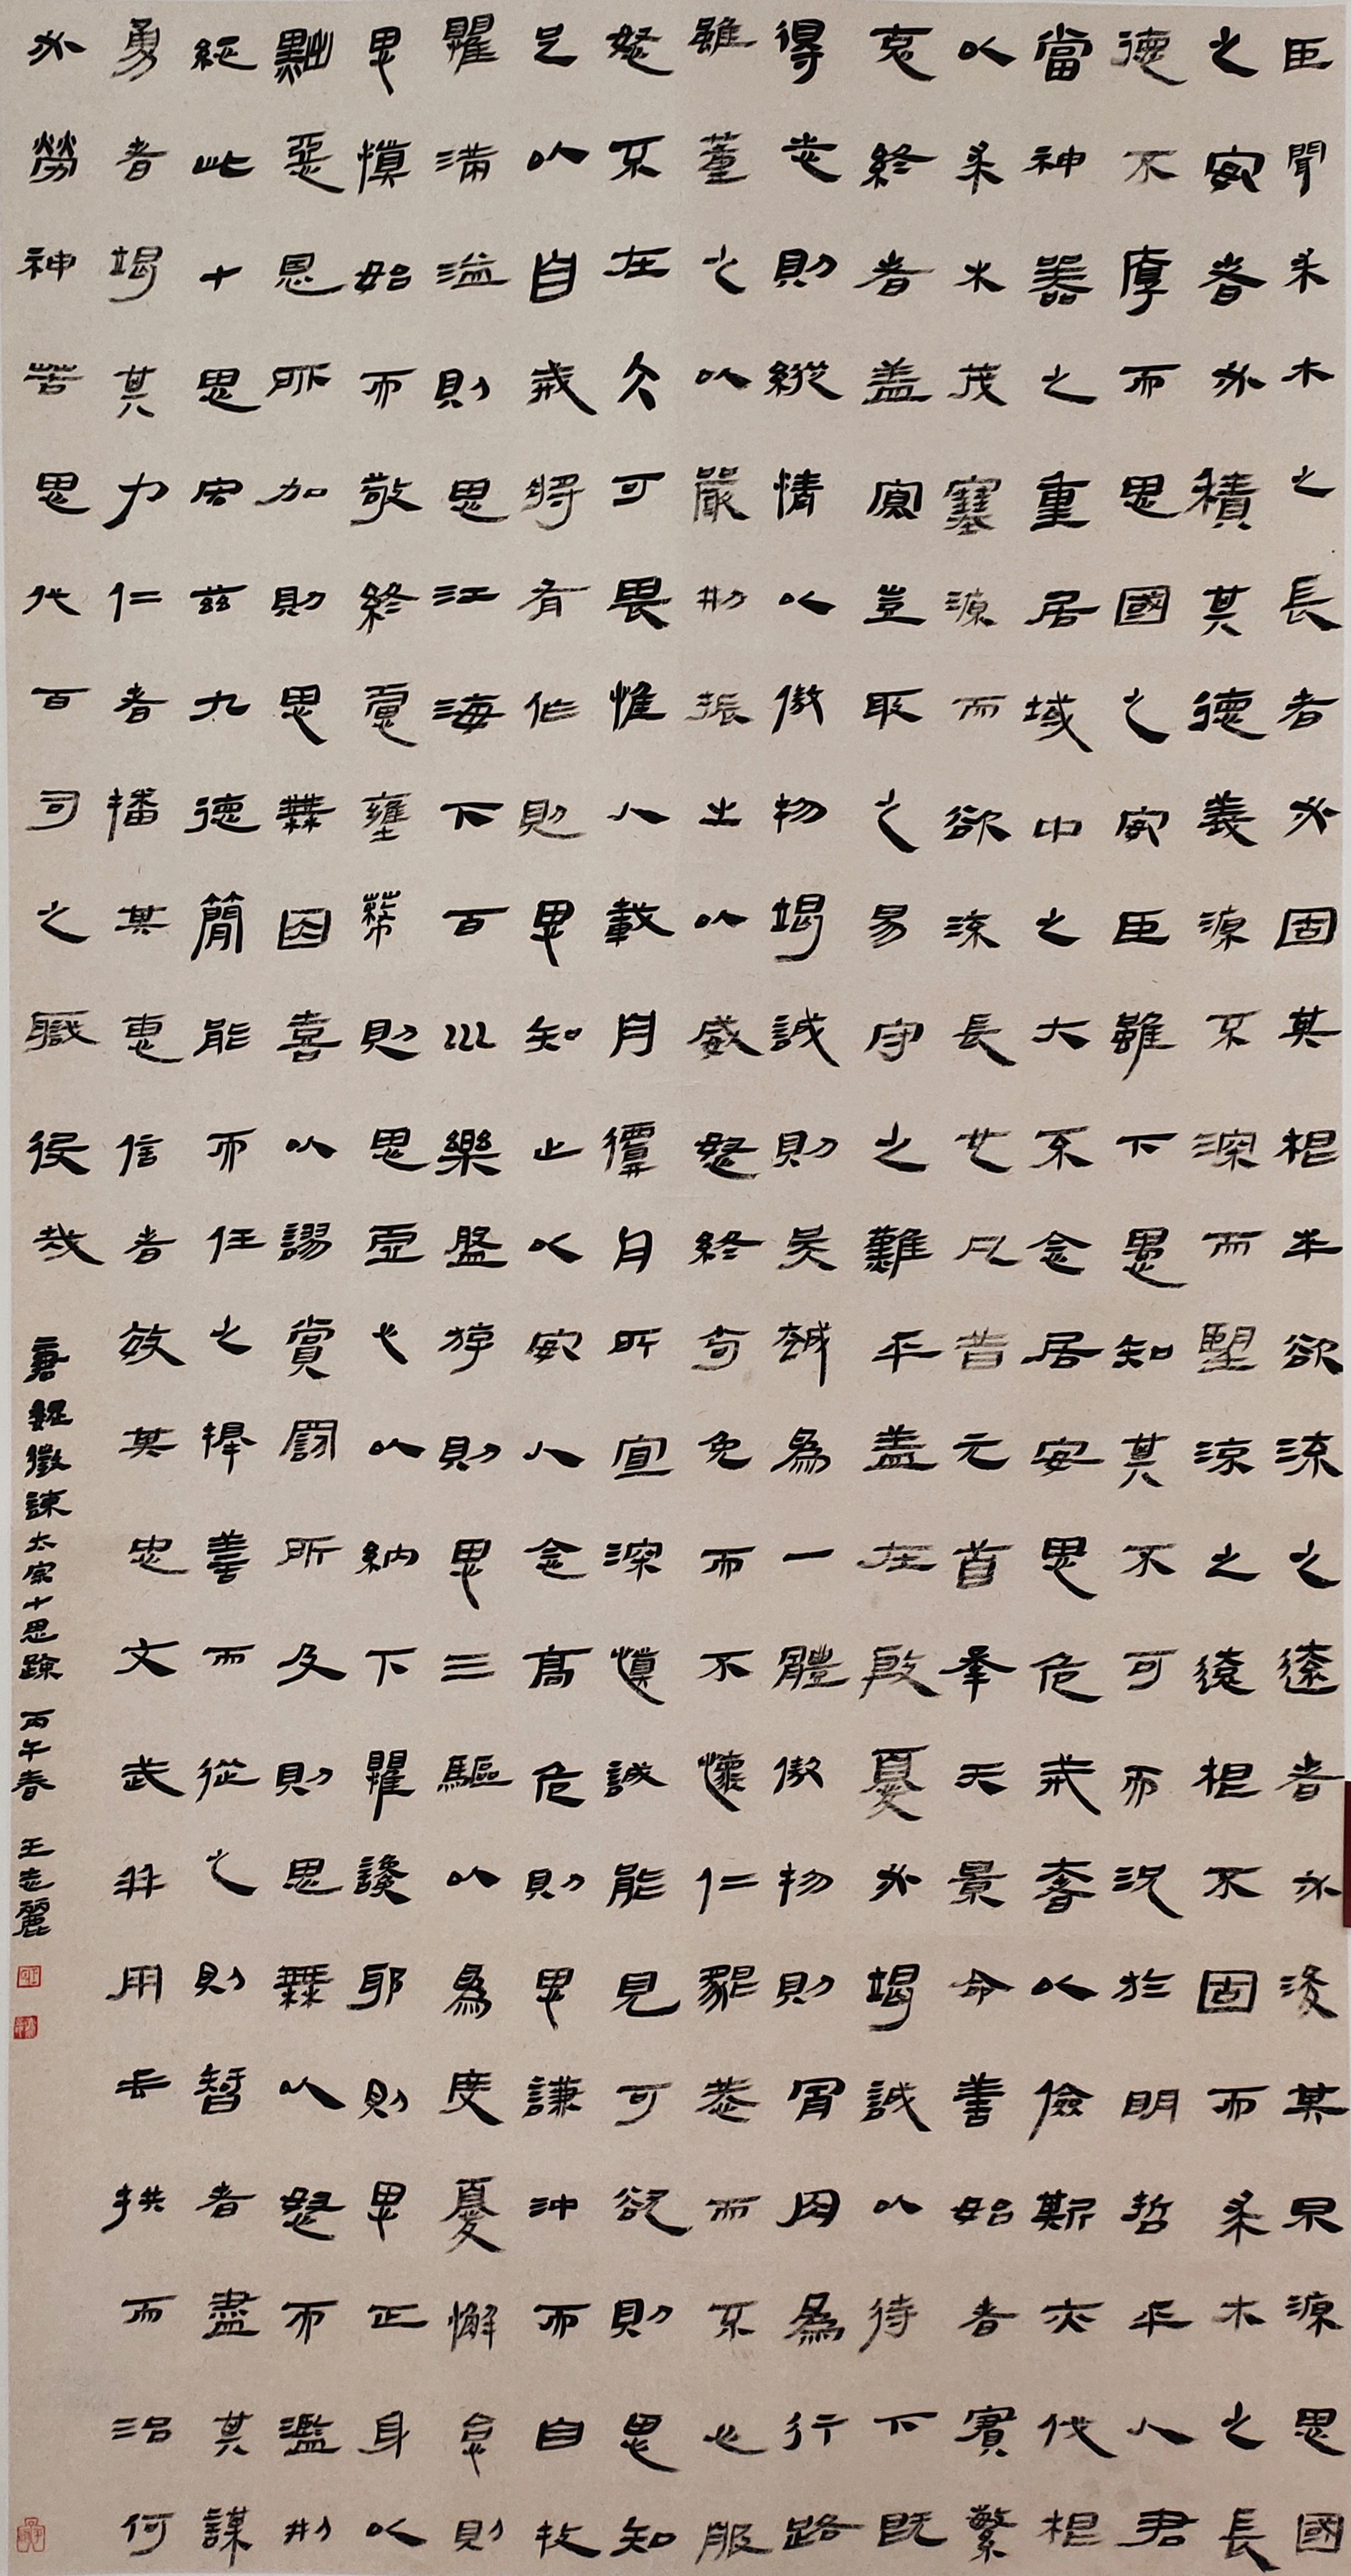 臣聞求木之長者必固其根本欲流之遠者必浚其泉源思國
之安者必積其德義源不深而望流之遠根不固而求木之長
德不厚而思國之安臣雖下愚知其不可而況於明哲乎人君
當神器之重居域中之大不念居安思危戒奢以儉斯亦伐根
以求木茂塞源而欲流長也凡昔元首承天景命善始者實繁
克終者盖寡豈取之易守之難乎盖在殷憂必竭誠以待下既
得志則縱情以傲物竭誠則吳越為一體傲物則骨肉為行路
雖董之以嚴刑振之以威怒終苟免而不懷仁貌恭而不心服
怨不在大可畏惟人載舟覆舟所宜深慎誠能見可欲則思知
足以自戒將有作則思知止以安人念高危則思謙沖而自牧
懼滿溢則思江海下百川樂盤游則思三驅以為度憂懈怠則
思慎始而敬終慮壅蔽則思虛心以納下懼讒邪則思正身以
黜惡恩所加則思無因喜以謬賞罰所及則思無以怒而濫刑
總此十思宏茲九德簡能而任之擇善而從之則智者盡其謀
勇者竭其力仁者播其惠信者效其忠文武並用垂拱而治何
必勞神苦思代百司之職役哉 唐魏徵諫太宗十思疏 丙午春 王志麗